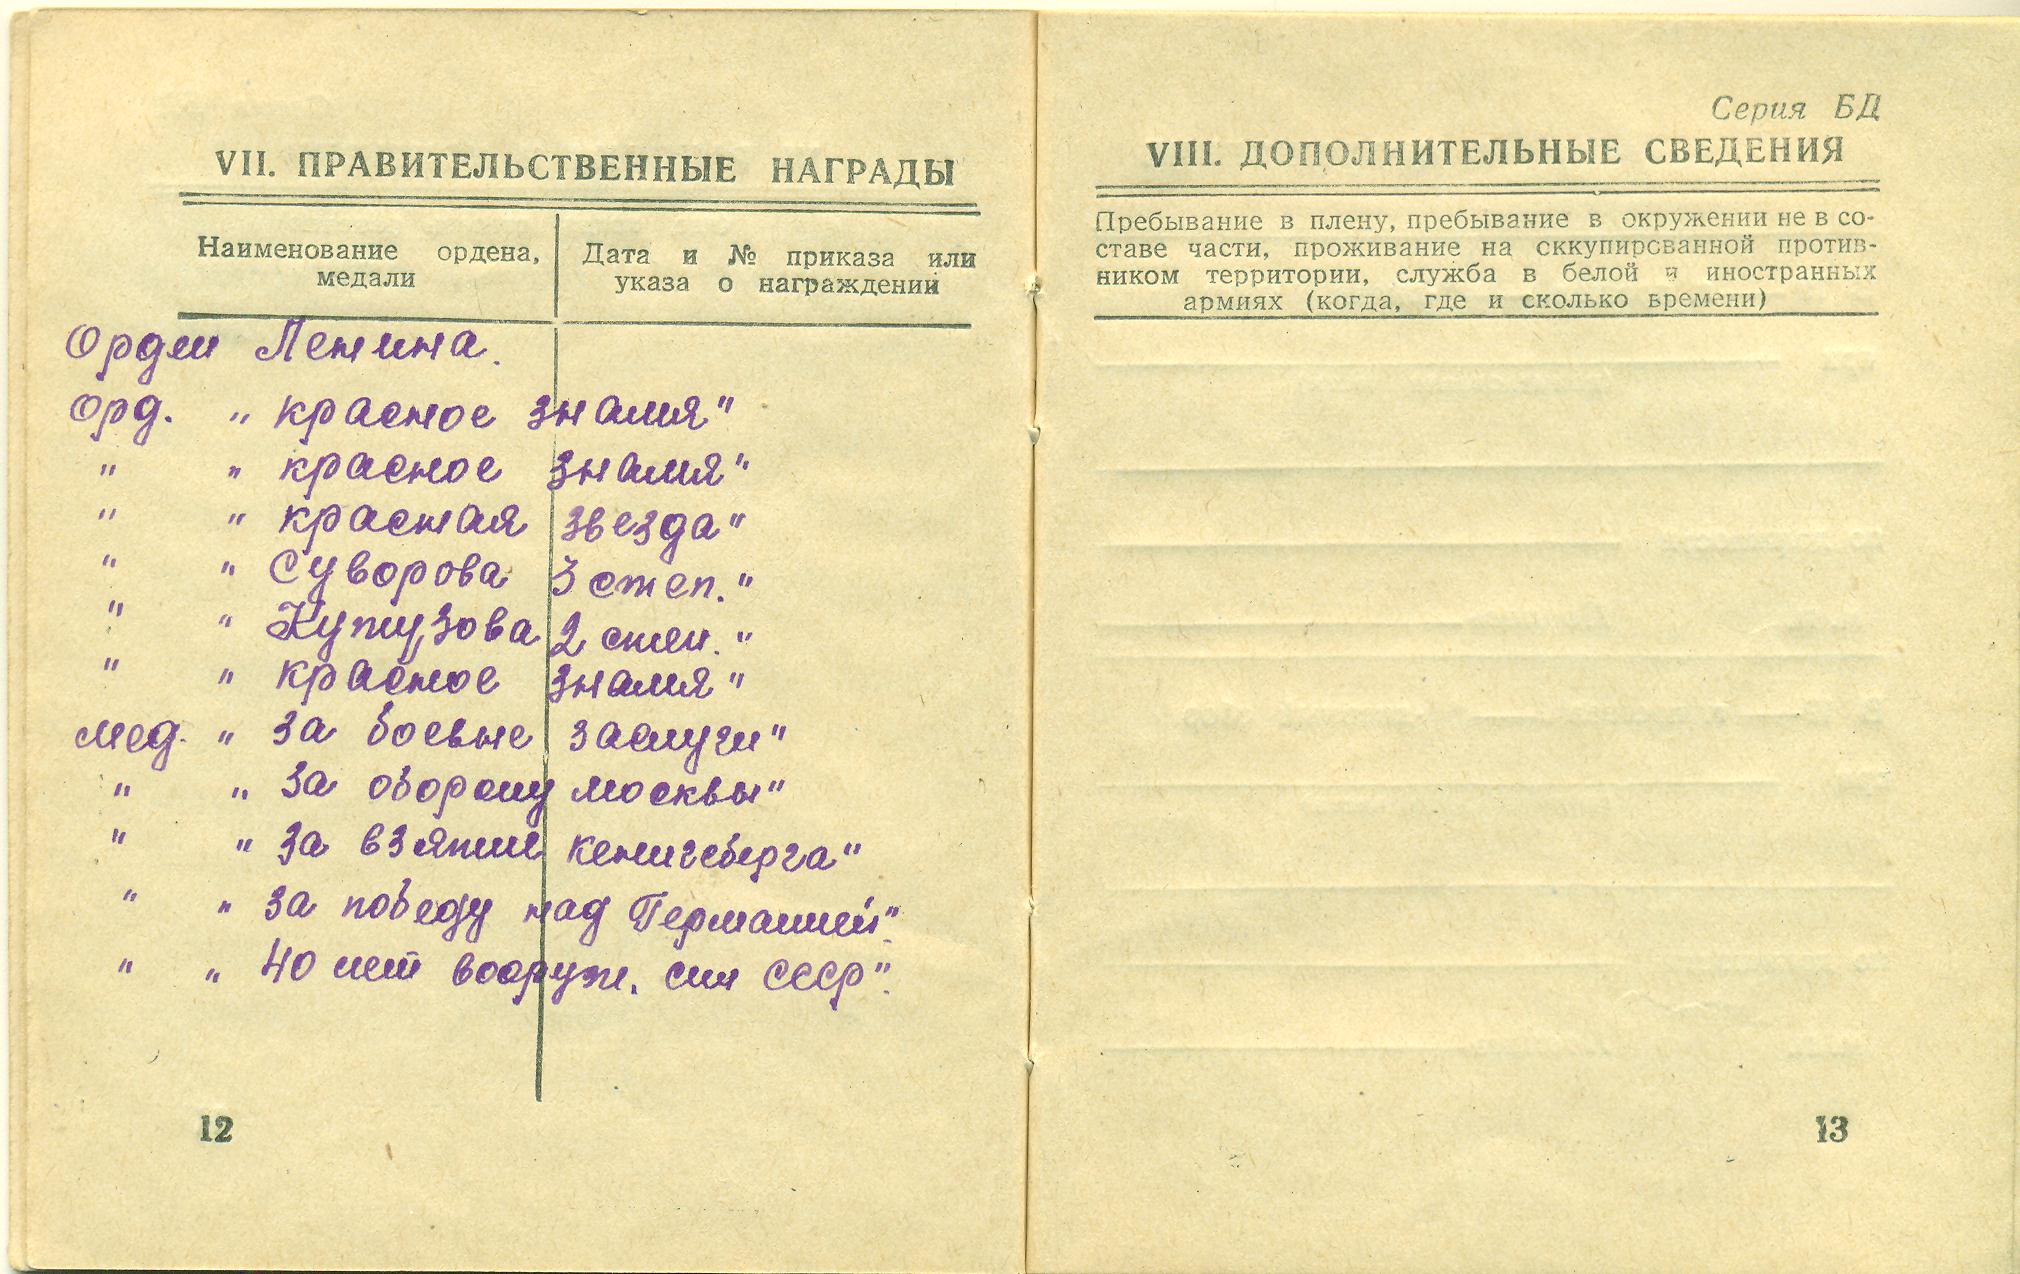 VII. ПРАВИТЕЛЬСТВЕННЫЕ НАГРАДЫ
Наименование ордена,
медали
Дата и № приказа или
указа о награждении
Орден Ленина.
Орд. „ красное знамя"
" „ красное знамя"
" „ красная звезда"
" „ Суворова 3 степ."
" „ Кутузова 2 степ."
" „ красное знамя"
мед. „ за боевые заслуги"
" „ за оборону москвы"
" „ за взятие кенигсберга"
" „ за победу над Германией".
" „ 40 лет вооруж. сил СССР".
12
Серия БД
VIII. ДОПОЛНИТЕЛЬНЫЕ СВЕДЕНИЯ
Пребывание в плену, пребывание в окружении не в со-
ставе части, проживание на сккупированной против-
ником территории, служба в белой и иностранных
армиях (когда, где и сколько времени)
13